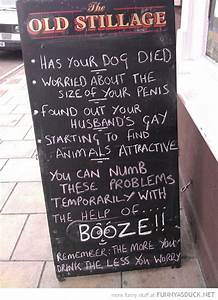 The
OLD STILLAGE
• HAS YOUR DOG DIED
• WORRIED ABOUT THE
SIZE OF YOUR PENIS
• FOUND OUT YOUR
HUSBAND'S GAY
• STARTING TO FIND
ANIMALS ATTRACTIVE
YOU CAN NUMB
THESE PROBLEMS
TEMPORARILY WITH
THE HELP OF....
BOOZE!!
REMEMBER: THE MORE YOU
DRINK THE LESS YOU WORRY
more funny stuff at FUNNYASDUCK.NET